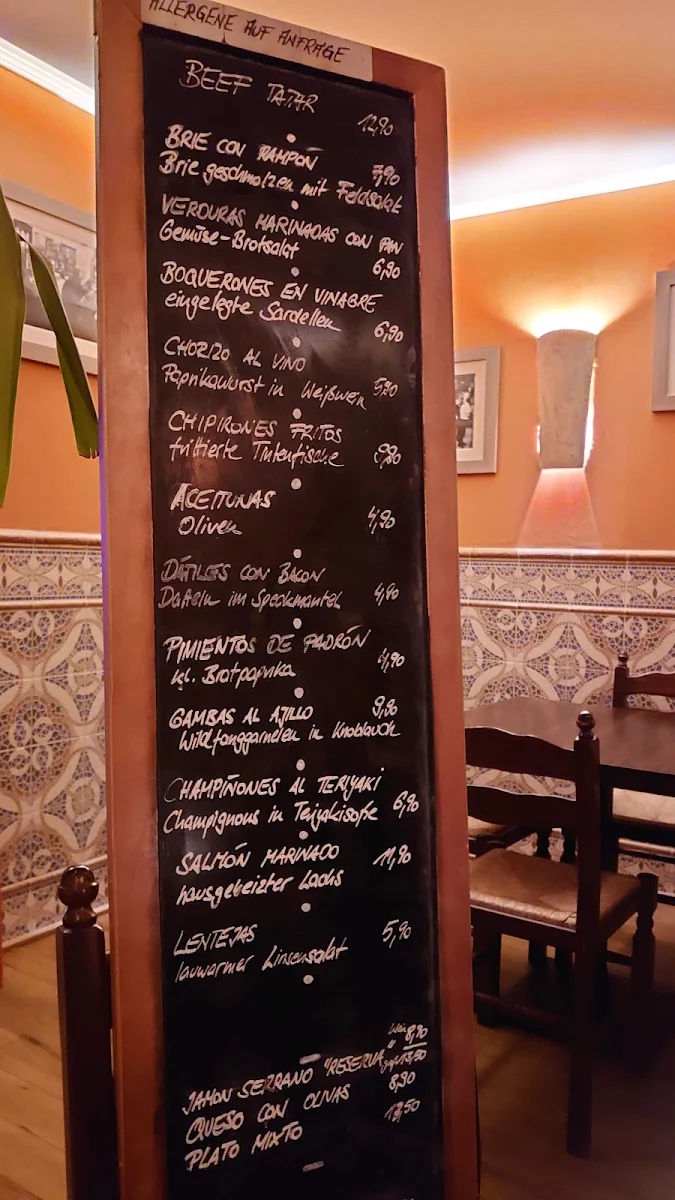 ALLERGENE AUF ANFRAGE
BEEF TATAR
12,90
BRIE CON RAMPON
7,90
Brie geschmolzen mit Feldsalat
VERDURAS MARINADAS CON PAN
Gemüse-Brotsalat
6,90
BOQUERONES EN VINAGRE
eingelegte Sardellen
6,90
CHORIZO AL VINO
Paprikawurst in Weißwein 5,90
CHIPIRONES FRITOS
frittierte Tintenfische 9,90
ACEITUNAS
Oliven 4,90
DÁTILES CON BACON
Datteln im Speckmantel 4,90
PIMIENTOS DE PADRÓN
kl. Bratpaprika 6,90
GAMBAS AL AJILLO 9,90
Wildfanggarnelen in Knoblauch
CHAMPIÑONES AL TERIYAKI
Champignons in Teriyakisoße 6,90
SALMÓN MARINADO 11,90
hausgebeizter Lachs
LENTEJAS 5,90
lauwarmer Linsensalat
klein 8,90
JAMON SERRANO "RESERVA" 13,50
QUESO CON OLIVAS 8,90
PLATO MIXTO 13,50